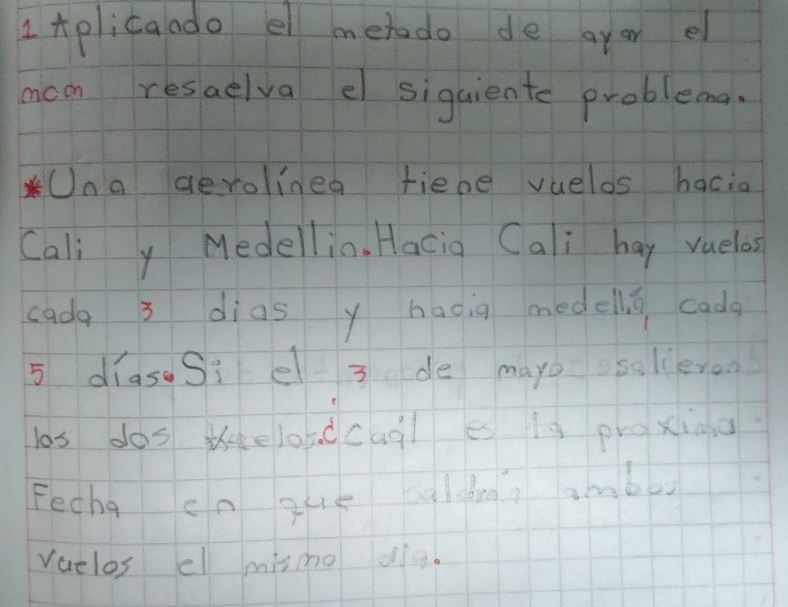 1 Aplicando el metodo de ayar el
mcm resaelva el siguiente problema.
*Una aerolínea tiene vuelos hacia
Cali y Medellin. Hacia Cali hay vuelos
cada 3 dias y hacia medellin, cada
5 días. Si el 3 de mayo salieron
los dos vuelos. ¿Cual es la proxima
Fecha en que saldran ambos
vuelos el mismo dia.